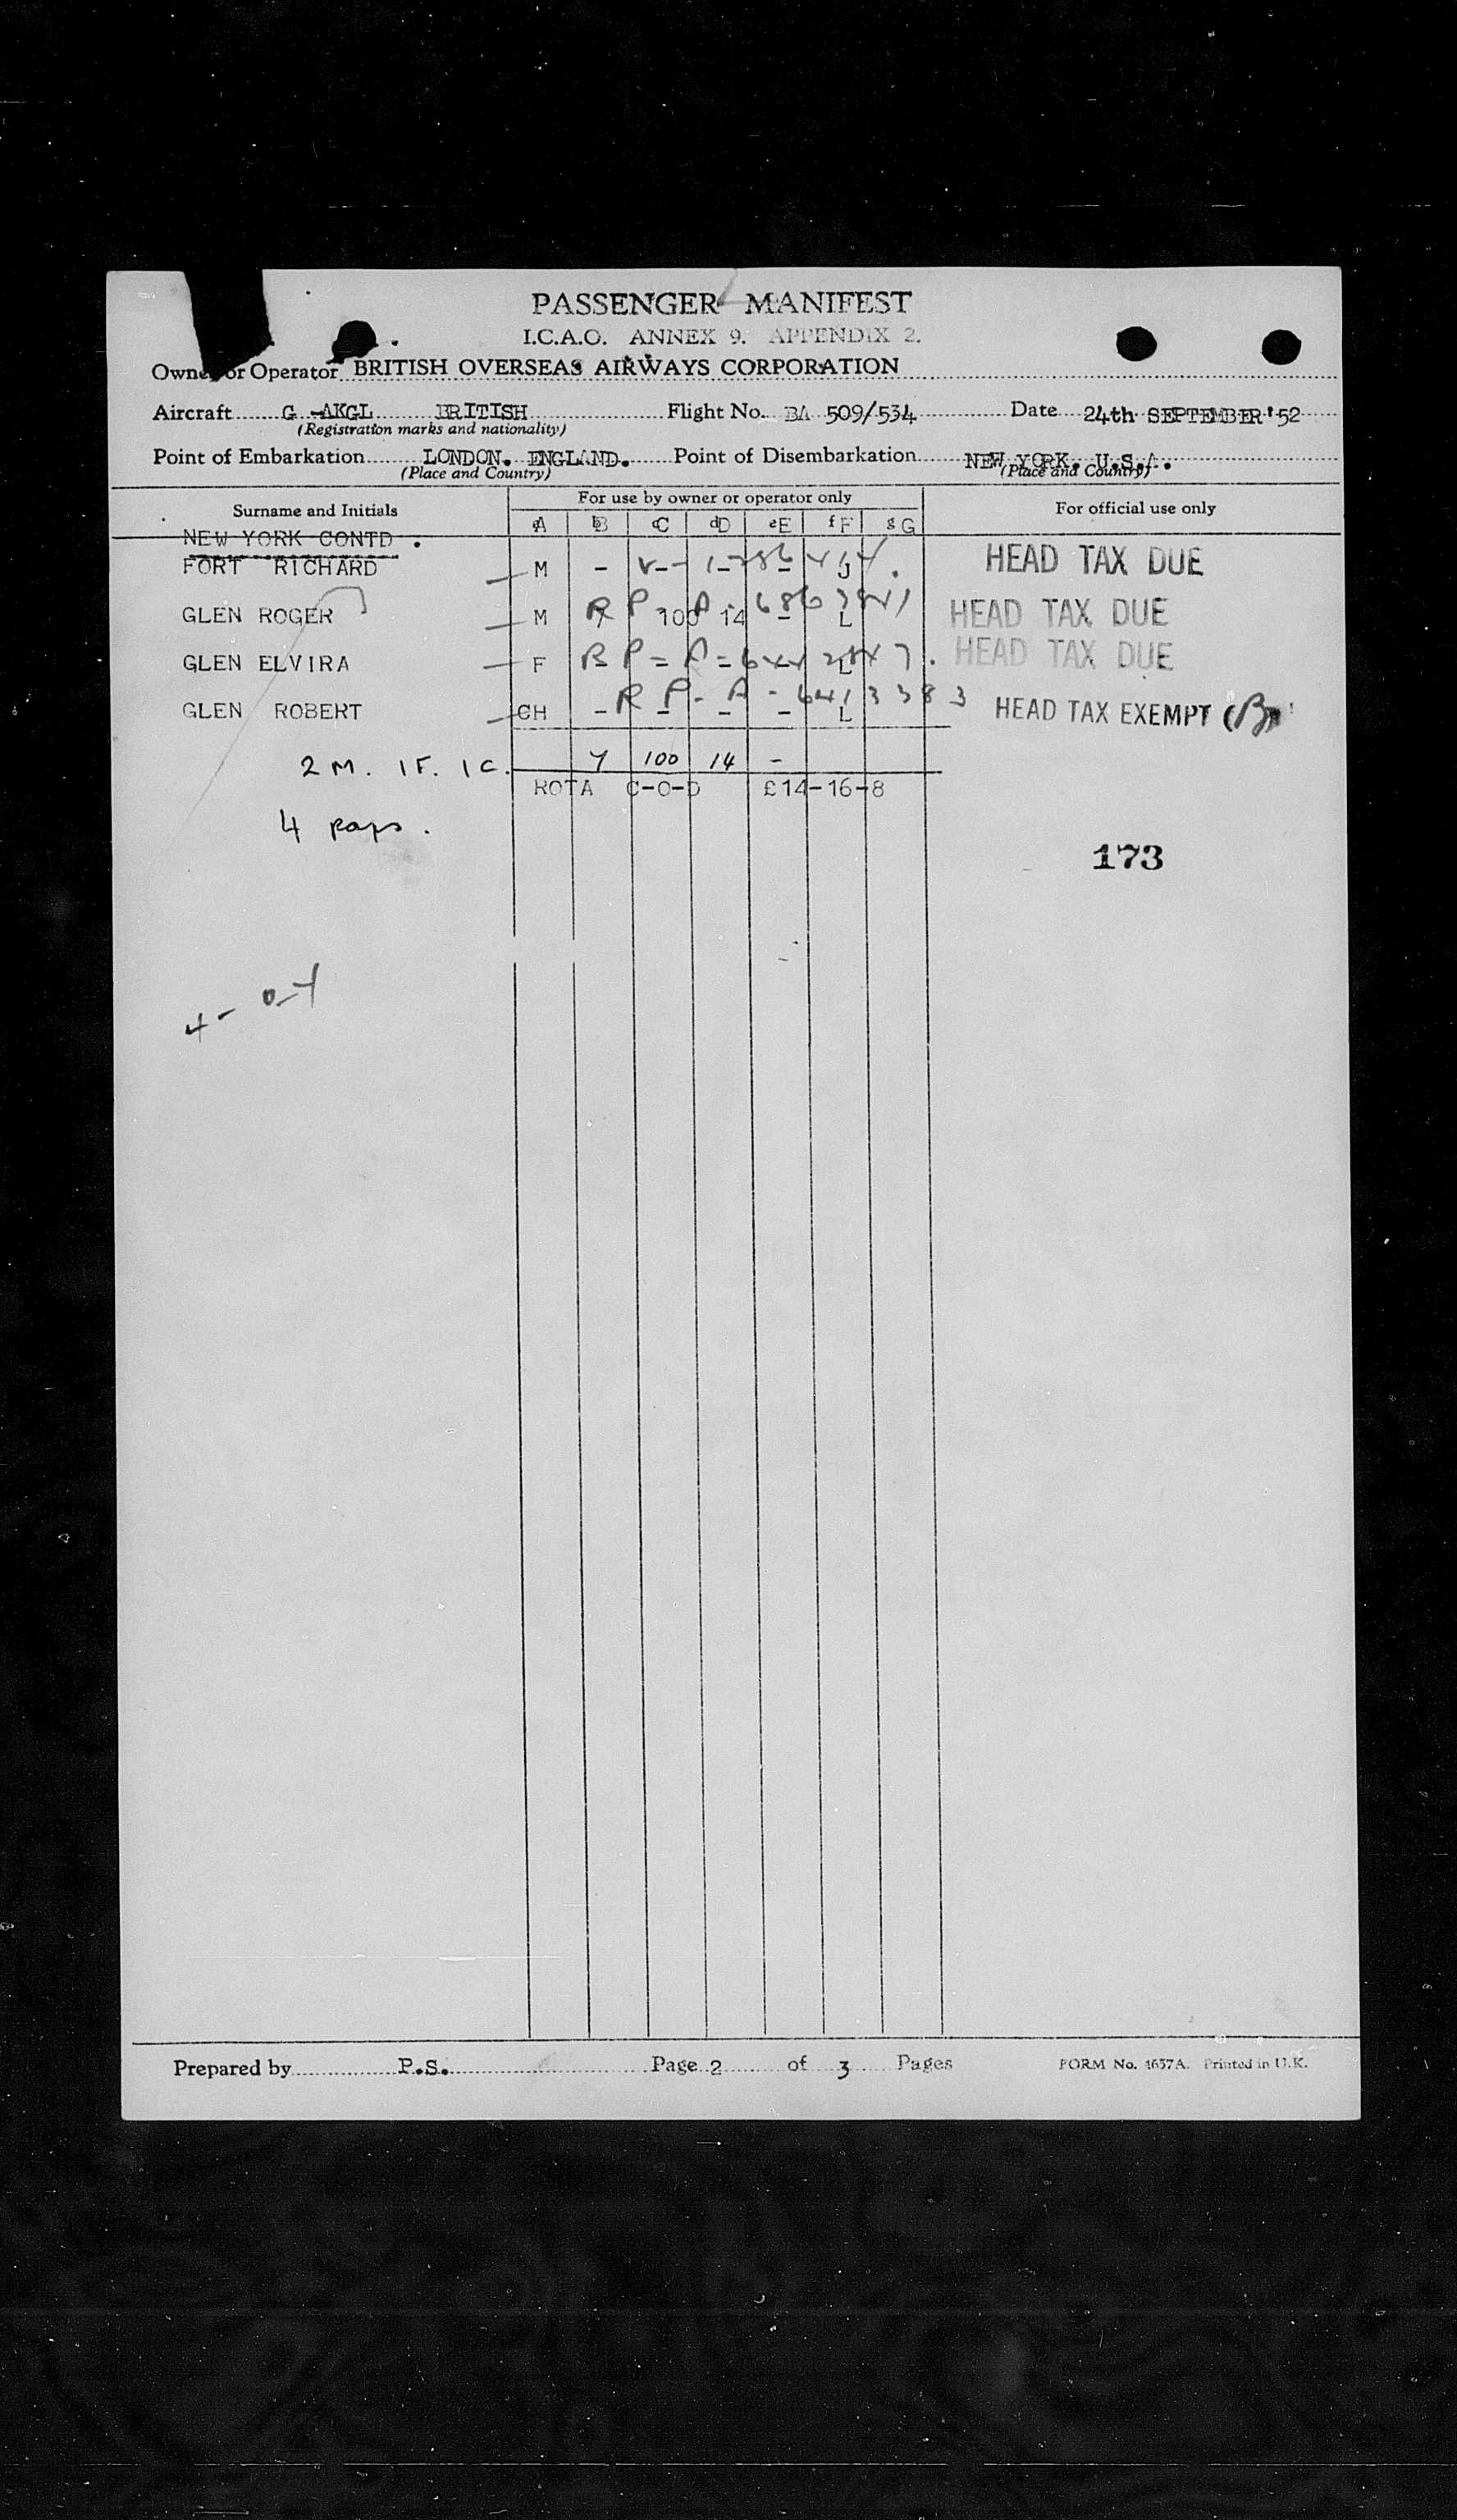 PASSENGER MANIFEST
I.C.A.O. ANNEX 9. APPENDIX 2.
Owner or Operator BRITISH OVERSEAS AIRWAYS CORPORATION
Aircraft G -AKGL BRITISH Flight No. BA 509/534 Date 24th SEPTEMBER'52
(Registration marks and nationality)
Point of Embarkation LONDON. ENGLAND. Point of Disembarkation NEW YORK. U.S.A.
(Place and Country) (Place and Country)
Surname and Initials For use by owner or operator only For official use only
A B C D E F G
NEW YORK CONTD.
FORT RICHARD M - HEAD TAX DUE
GLEN ROGER M 100 14 - L HEAD TAX DUE
GLEN ELVIRA F HEAD TAX DUE
RP-A-6413383
GLEN ROBERT CH - - - - L HEAD TAX EXEMPT (B)
2 M. 1 F. 1 C. 7 100 14 -
ROTA C-O-D £14-16-8
4
173
4-
Prepared by P.S. Page 2 of 3 Pages FORM No. 1637A. Printed in U.K.